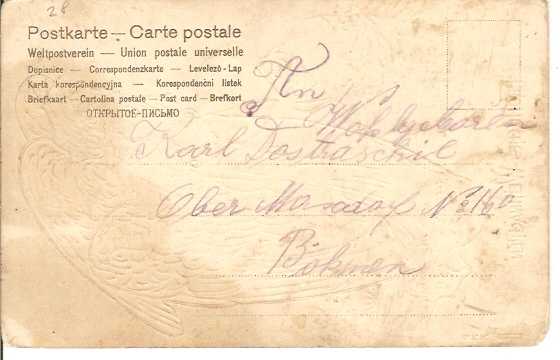 28
Postkarte — Carte postale
Weltpostverein — Union postale universelle
Dopisnice — Correspondenzkarte — Levelező-Lap
Karta korespondencyjna — Korespondenční lístek
Briefkaart — Cartolina postale — Post card — Brefkort
ОТКРЫТОЕ-ПИСЬМО
An
Karl Dostraschil
Ober
Böhmen